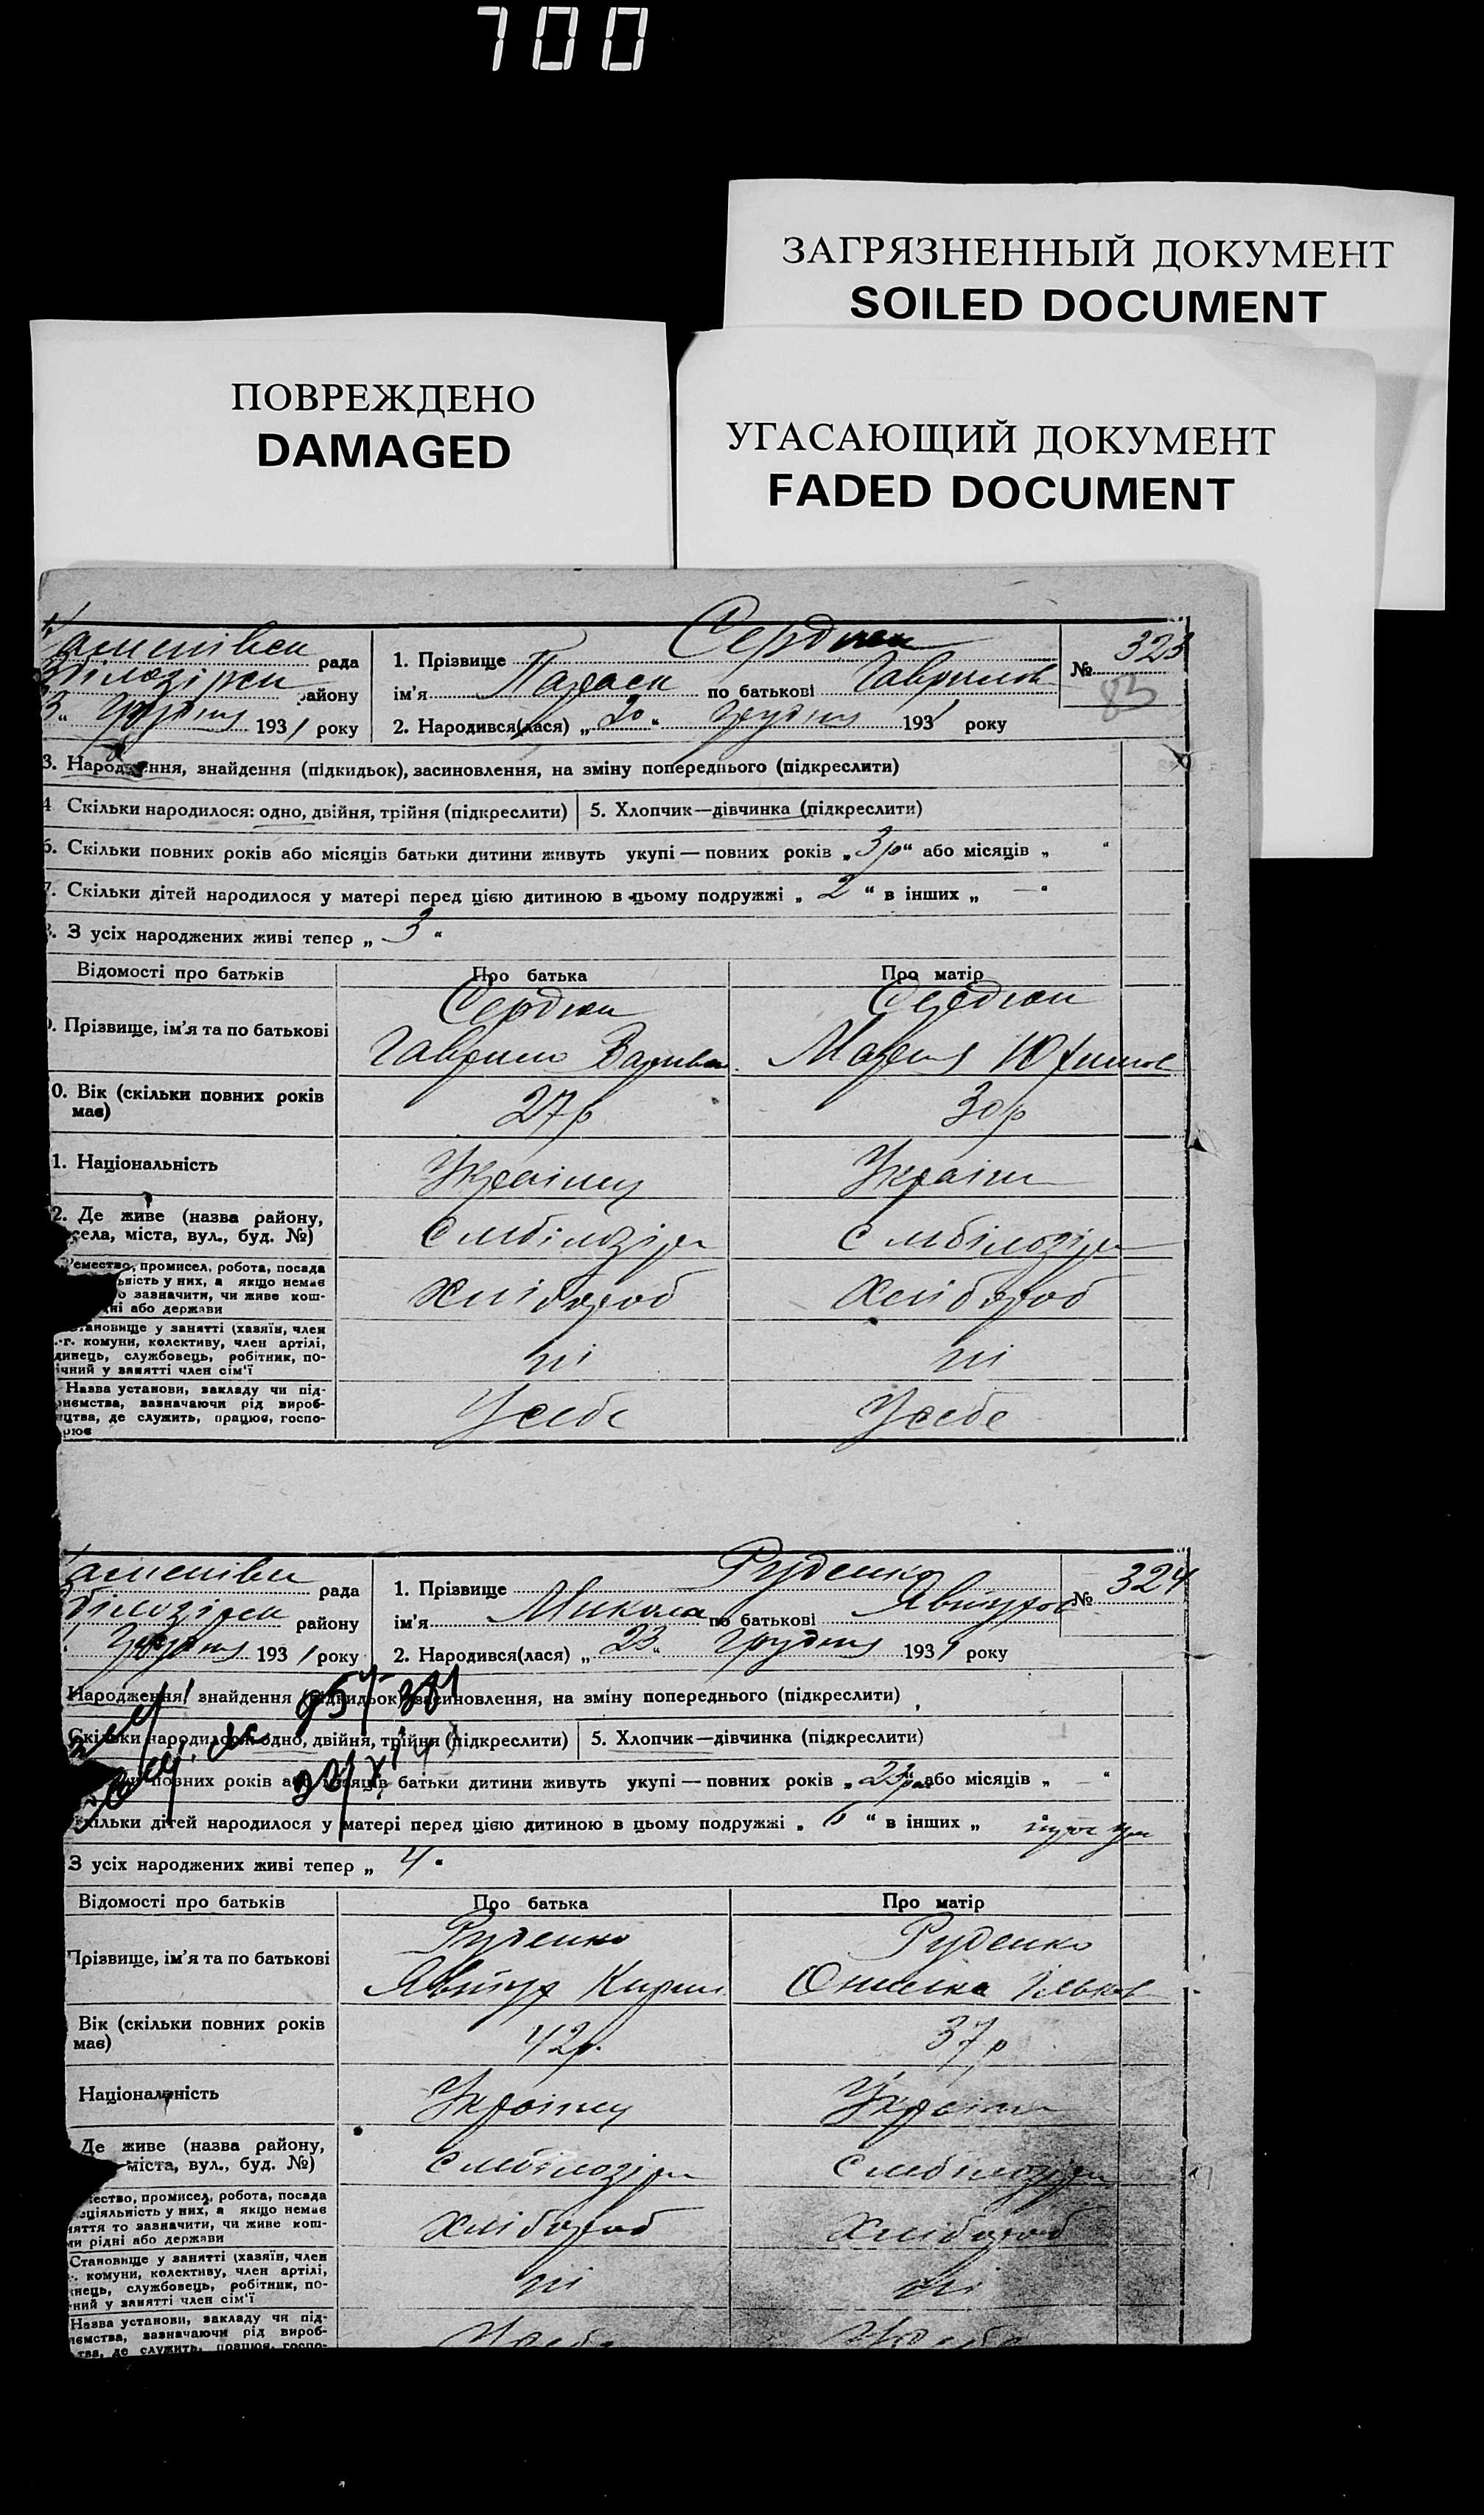 700
ЗАГРЯЗНЕННЫЙ ДОКУМЕНТ
SOILED DOCUMENT
ПОВРЕЖДЕНО
DAMAGED
УГАСАЮЩИЙ ДОКУМЕНТ
FADED DOCUMENT
рада
району
Грудня 1931 року
1. Прізвище Сердюк
№ 323
83
ім'я Параска по батькові Гаврилов
2. Народився(лася) „ 20 “ Грудня 1931 року
3. Народження, знайдення (підкидьок), засиновлення, на зміну попереднього (підкреслити)
4 Скільки народилося: одно, двійня, трійня (підкреслити) 5. Хлопчик—дівчинка (підкреслити)
6. Скільки повних років або місяців батьки дитини живуть укупі — повних років „ 3 р “ або місяців „ “
7. Скільки дітей народилося у матері перед цією дитиною в цьому подружжі „ 2 “ в інших „ — “
8. З усіх народжених живі тепер „ 3 “
Відомості про батьків Про батька Про матір
9. Прізвище, ім'я та по батькові
Сердюк Сердюк
Гаврило Мария
0. Вік (скільки повних років має) 27 р 30 р
1. Національність Українец Україн
2. Де живе (назва району, села, міста, вул., буд. №)
емество, промисел, робота, посада
ьність у них, а якщо немає
о зазначити, чи живе кош-
дні або держави
Хлібороб Хлібороб
тановище у занятті (хазяїн, член
.-г. комуни, колективу, член артілі,
динець, службовець, робітник, по-
ічний у занятті член сім'ї
ні ні
Назва установи, закладу чи під-
риємства, зазначаючи рід вироб-
ицтва, де служить, працює, госпо-
рює
У себе У себе
рада
району
Грудня 1931 року
1. Прізвище Руденко
№ 324
ім'я Микола по батькові Явтухов
2. Народився(лася) „ 23 “ Грудня 1931 року
Народження, знайдення (підкидьок), засиновлення, на зміну попереднього (підкреслити)
Скільки народилося: одно, двійня, трійня (підкреслити) 5. Хлопчик—дівчинка (підкреслити)
повних років або місяців батьки дитини живуть укупі — повних років „ 23 “ або місяців „ — “
Скільки дітей народилося у матері перед цією дитиною в цьому подружжі „ “ в інших „
З усіх народжених живі тепер „ 4 “
Відомості про батьків Про батька Про матір
Прізвище, ім'я та по батькові
Руденко Руденко
Явтух Кирил
Вік (скільки повних років має) 42 р. 37 р
Національність Українец Україн
Де живе (назва району, міста, вул., буд. №)
ество, промисел, робота, посада
еціяльність у них, а якщо немає
няття то зазначити, чи живе кош-
ми рідні або держави
Хлібороб Хлібороб
Становище у занятті (хазяїн, член
. комуни, колективу, член артілі,
инець, службовець, робітник, по-
ний у занятті член сім'ї
ні ні
Назва установи, закладу чи під-
иємства, зазначаючи рід вироб-
тва, де служить, працює, госпо-
У себе У себе